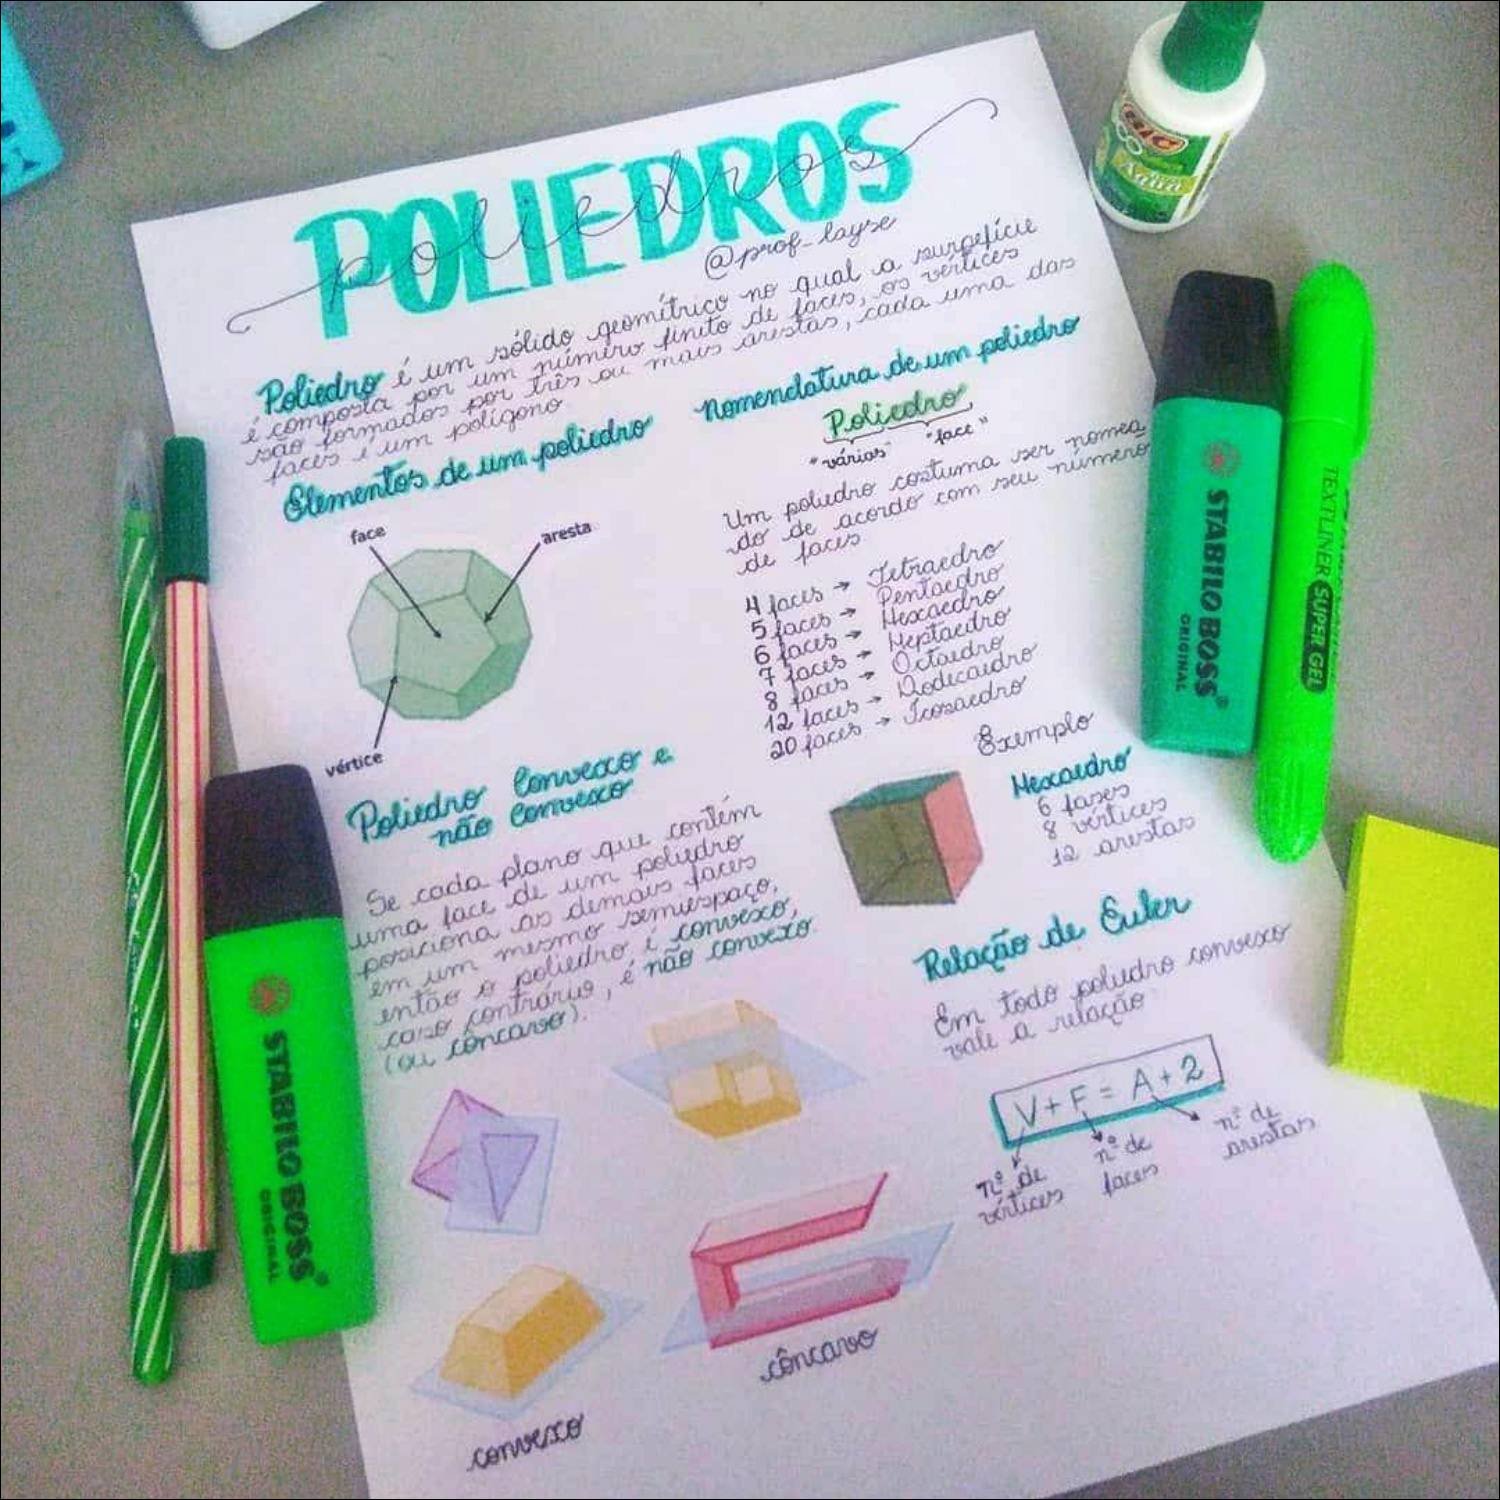 POLIEDROS
poliedros
@prof_layse
Poliedro é um sólido geométrico no qual a surpefície
é composta por um número finito de faces, os vértices
são formados por três ou mais arestas, cada uma das
faces é um polígono.
Elementos de um poliedro
face
aresta
vértice
Nomenclatura de um poliedro
Poliedro
"várias" "face"
Um poliedro costuma ser nomea
do de acordo com seu número
de faces
4 faces → Tetraedro
5 faces → Pentaedro
6 faces → Hexaedro
7 faces → Heptaedro
8 faces → Octaedro
12 faces → Dodecaedro
20 faces → Icosaedro
Poliedro Convexo e
não Convexo
Se cada plano que contém
uma face de um poliedro
posiciona as demais faces
em um mesmo semiespaço,
então o poliedro é convexo,
caso contrário, é não convexo.
(ou côncavo).
convexo
côncavo
Exemplo
Hexaedro
6 fases
8 vértices
12 arestas
Relação de Euler
Em todo poliedro convexo
vale a relação
V + F = A + 2
nº de
vértices
nº de
faces
nº de
arestas
STABILO BOSS®
ORIGINAL
STABILO BOSS®
ORIGINAL
TEXTLINER SUPER GEL
BIC